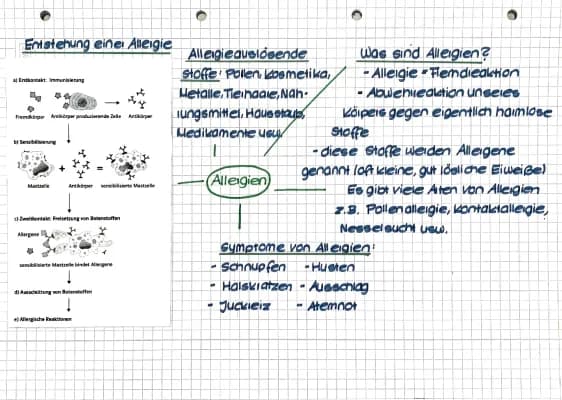 Entstehung einer Allergie
a) Erstkontakt: Immunisierung
Fremdkörper
Antikörper produzierende Zelle
Antikörper
b) Sensibilisierung
Mastzelle
Antikörper
sensibilisierte Mastzelle
c) Zweitkontakt: Freisetzung von Botenstoffen
Allergene
sensibilisierte Mastzelle bindet Allergene
d) Ausschüttung von Botenstoffen
e) Allergische Reaktionen
Allergieauslösende
Stoffe: Pollen, Kosmetika,
Metalle, Tierhaare, Nah-
rungsmittel, Hausstaub,
Medikamente usw.
Allergien
Was sind Allergien?
- Allergie = Fremdreaktion
- Abwehrreaktion unseres
Körpers gegen eigentlich harmlose
Stoffe
- diese Stoffe werden Allergene
genannt (oft kleine, gut lösliche Eiweiße)
Es gibt viele Arten von Allergien
z.B. Pollenallergie, Kontaktallergie,
Nesselsucht usw.
Symptome von Allergien:
- Schnupfen - Husten
- Halskratzen - Ausschlag
- Juckreiz - Atemnot